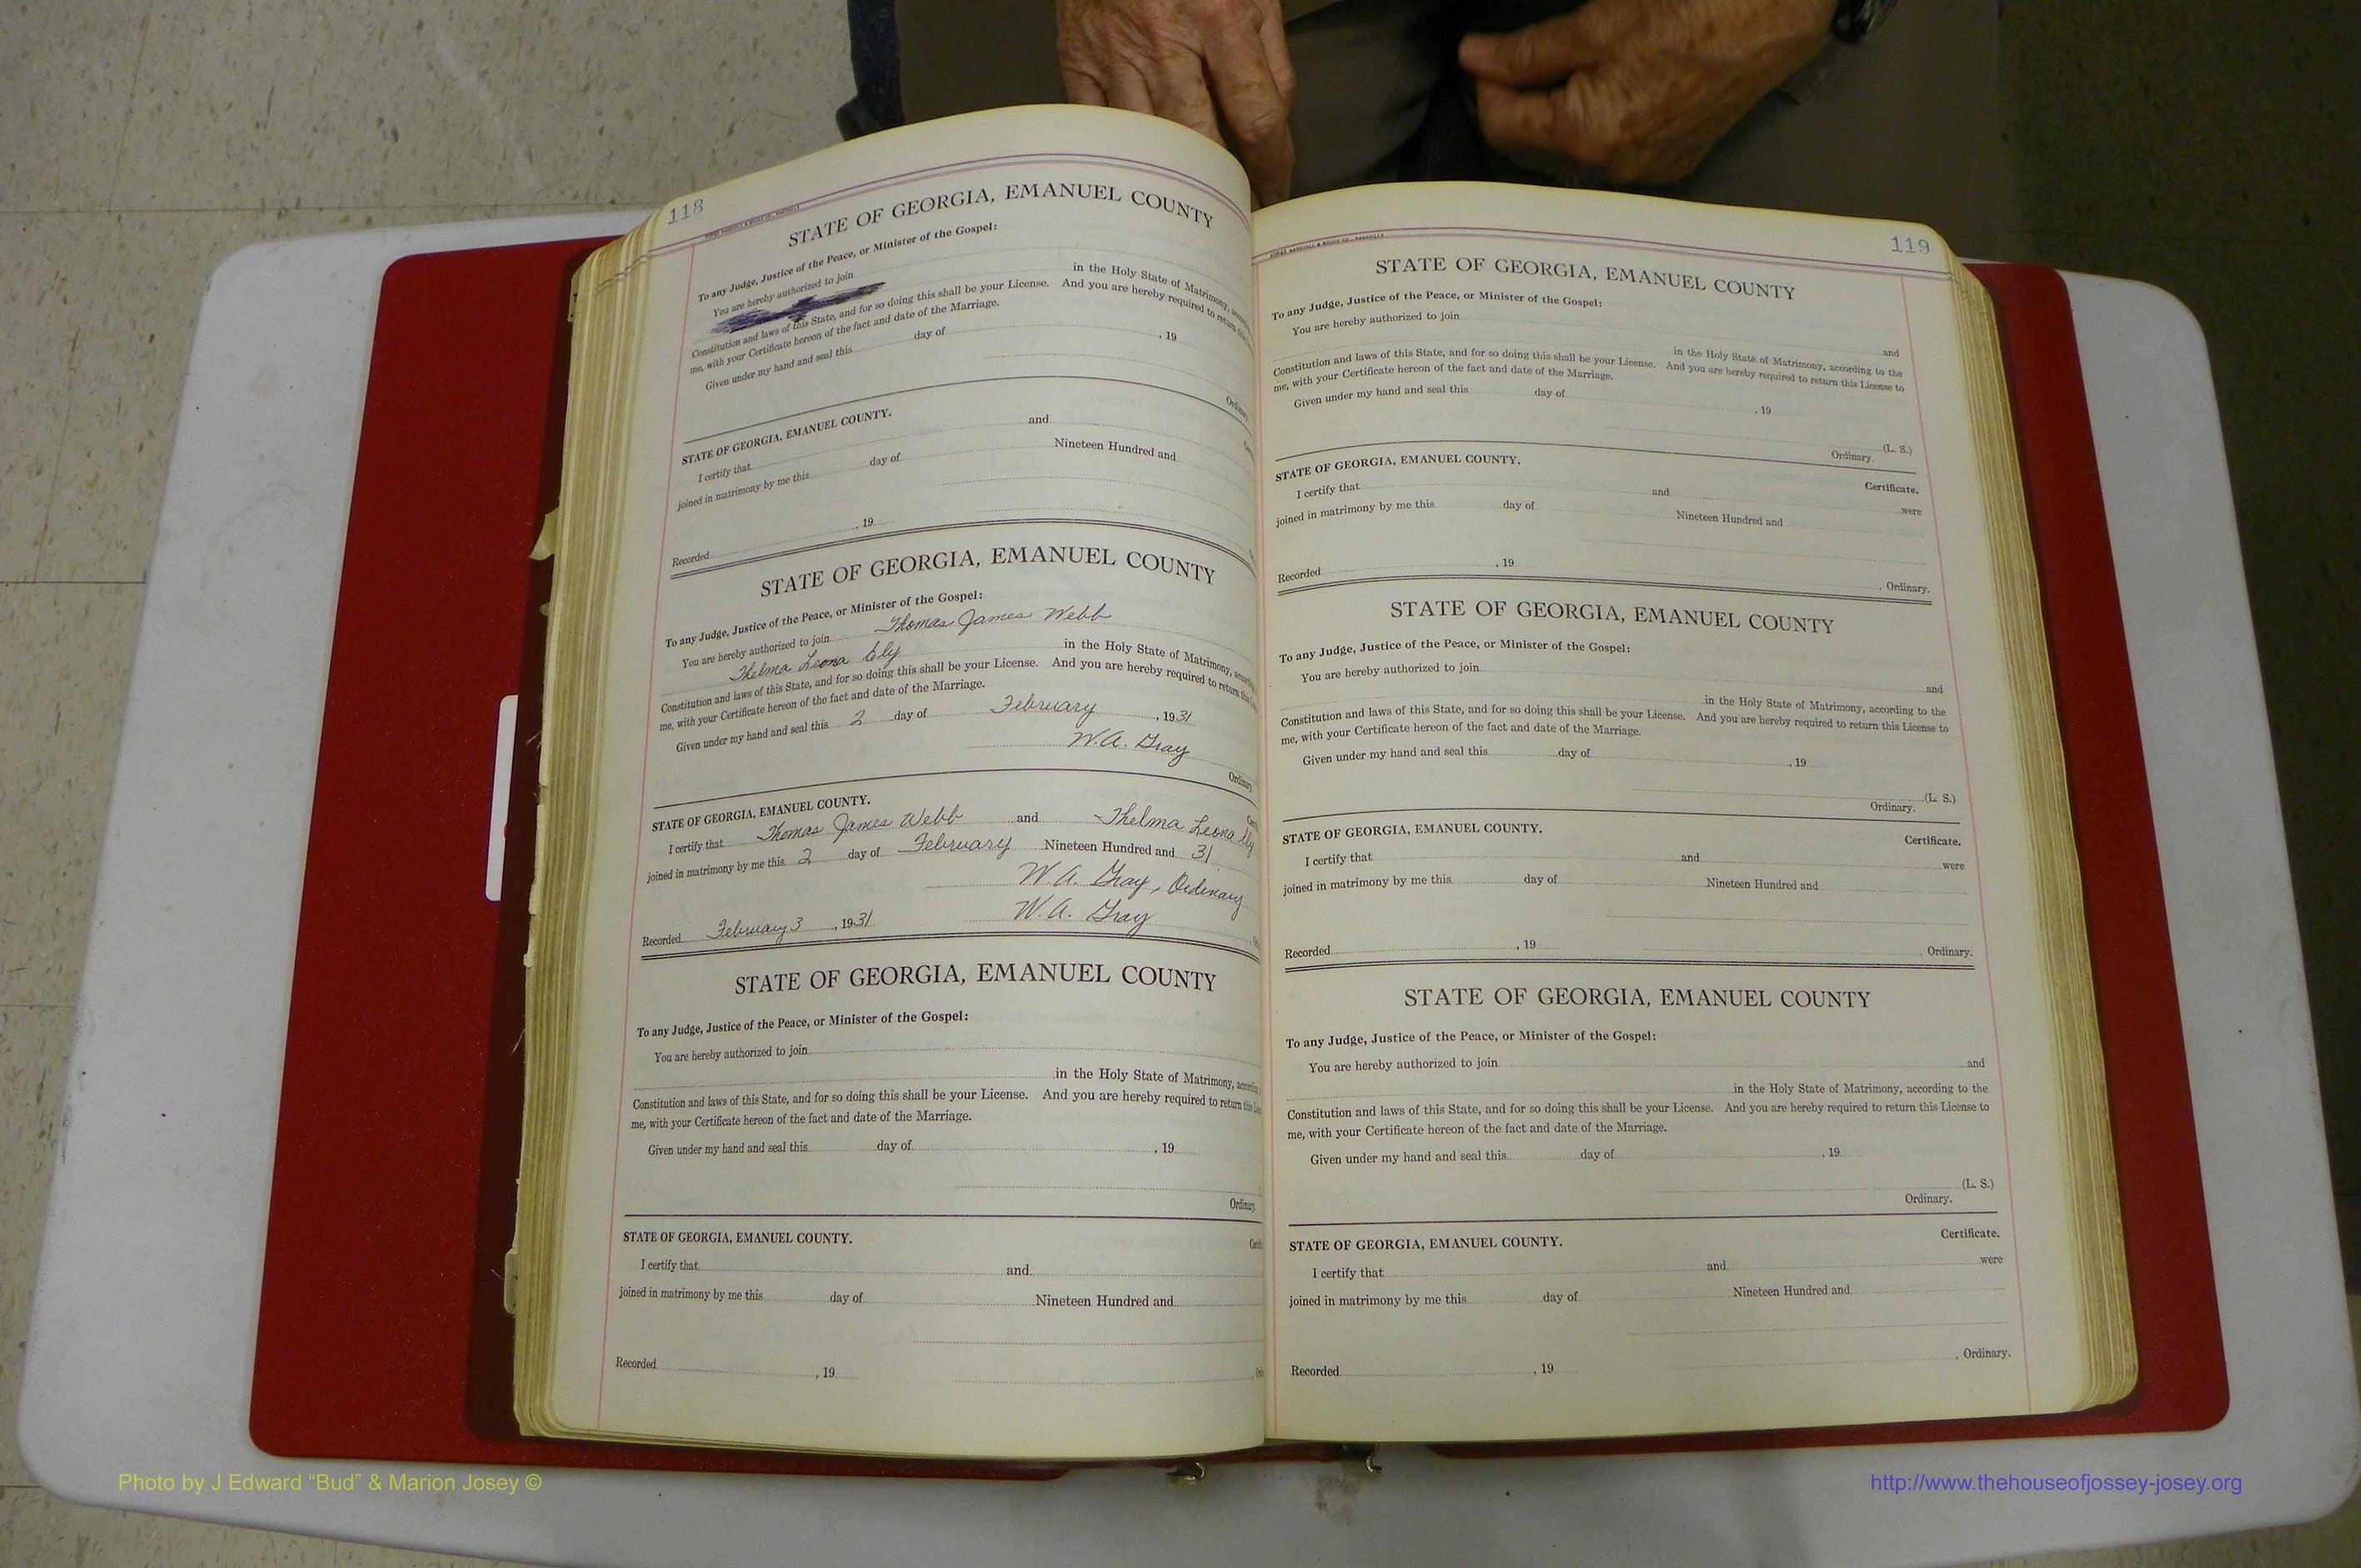 118
STATE OF GEORGIA, EMANUEL COUNTY
To any Judge, Justice of the Peace, or Minister of the Gospel:
You are hereby authorized to join
in the Holy State of Matrimony,
Constitution and laws of this State, and for so doing this shall be your License. And you are hereby required to return this
me, with your Certificate hereon of the fact and date of the Marriage.
Given under my hand and seal this day of , 19
Ordinary.
STATE OF GEORGIA, EMANUEL COUNTY.
I certify that and
joined in matrimony by me this day of Nineteen Hundred and
Recorded , 19
STATE OF GEORGIA, EMANUEL COUNTY
To any Judge, Justice of the Peace, or Minister of the Gospel:
You are hereby authorized to join Thomas James Webb
Thelma Leona Ely in the Holy State of Matrimony,
Constitution and laws of this State, and for so doing this shall be your License. And you are hereby required to return this
me, with your Certificate hereon of the fact and date of the Marriage.
Given under my hand and seal this 2 day of February , 1931
W.A. Gray
Ordinary
STATE OF GEORGIA, EMANUEL COUNTY.
I certify that Thomas James Webb and Thelma Leona Ely
joined in matrimony by me this 2 day of February Nineteen Hundred and 31
W.A. Gray, Ordinary
Recorded February 3 , 1931 W.A. Gray
STATE OF GEORGIA, EMANUEL COUNTY
To any Judge, Justice of the Peace, or Minister of the Gospel:
You are hereby authorized to join
in the Holy State of Matrimony,
Constitution and laws of this State, and for so doing this shall be your License. And you are hereby required to return this
me, with your Certificate hereon of the fact and date of the Marriage.
Given under my hand and seal this day of , 19
Ordinary
STATE OF GEORGIA, EMANUEL COUNTY.
I certify that and
joined in matrimony by me this day of Nineteen Hundred and
Recorded , 19
119
STATE OF GEORGIA, EMANUEL COUNTY
To any Judge, Justice of the Peace, or Minister of the Gospel:
You are hereby authorized to join
and
in the Holy State of Matrimony, according to the
Constitution and laws of this State, and for so doing this shall be your License. And you are hereby required to return this License to
me, with your Certificate hereon of the fact and date of the Marriage.
Given under my hand and seal this day of , 19
(L. S.)
Ordinary.
STATE OF GEORGIA, EMANUEL COUNTY. Certificate.
I certify that and were
joined in matrimony by me this day of Nineteen Hundred and
Recorded , 19 , Ordinary.
STATE OF GEORGIA, EMANUEL COUNTY
To any Judge, Justice of the Peace, or Minister of the Gospel:
You are hereby authorized to join and
in the Holy State of Matrimony, according to the
Constitution and laws of this State, and for so doing this shall be your License. And you are hereby required to return this License to
me, with your Certificate hereon of the fact and date of the Marriage.
Given under my hand and seal this day of , 19
(L. S.)
Ordinary.
STATE OF GEORGIA, EMANUEL COUNTY. Certificate.
I certify that and were
joined in matrimony by me this day of Nineteen Hundred and
Recorded , 19 , Ordinary.
STATE OF GEORGIA, EMANUEL COUNTY
To any Judge, Justice of the Peace, or Minister of the Gospel:
You are hereby authorized to join and
in the Holy State of Matrimony, according to the
Constitution and laws of this State, and for so doing this shall be your License. And you are hereby required to return this License to
me, with your Certificate hereon of the fact and date of the Marriage.
Given under my hand and seal this day of , 19
(L. S.)
Ordinary.
STATE OF GEORGIA, EMANUEL COUNTY. Certificate.
I certify that and were
joined in matrimony by me this day of Nineteen Hundred and
, Ordinary.
Recorded , 19
Photo by J Edward “Bud” & Marion Josey ©
http://www.thehouseofjossey-josey.org